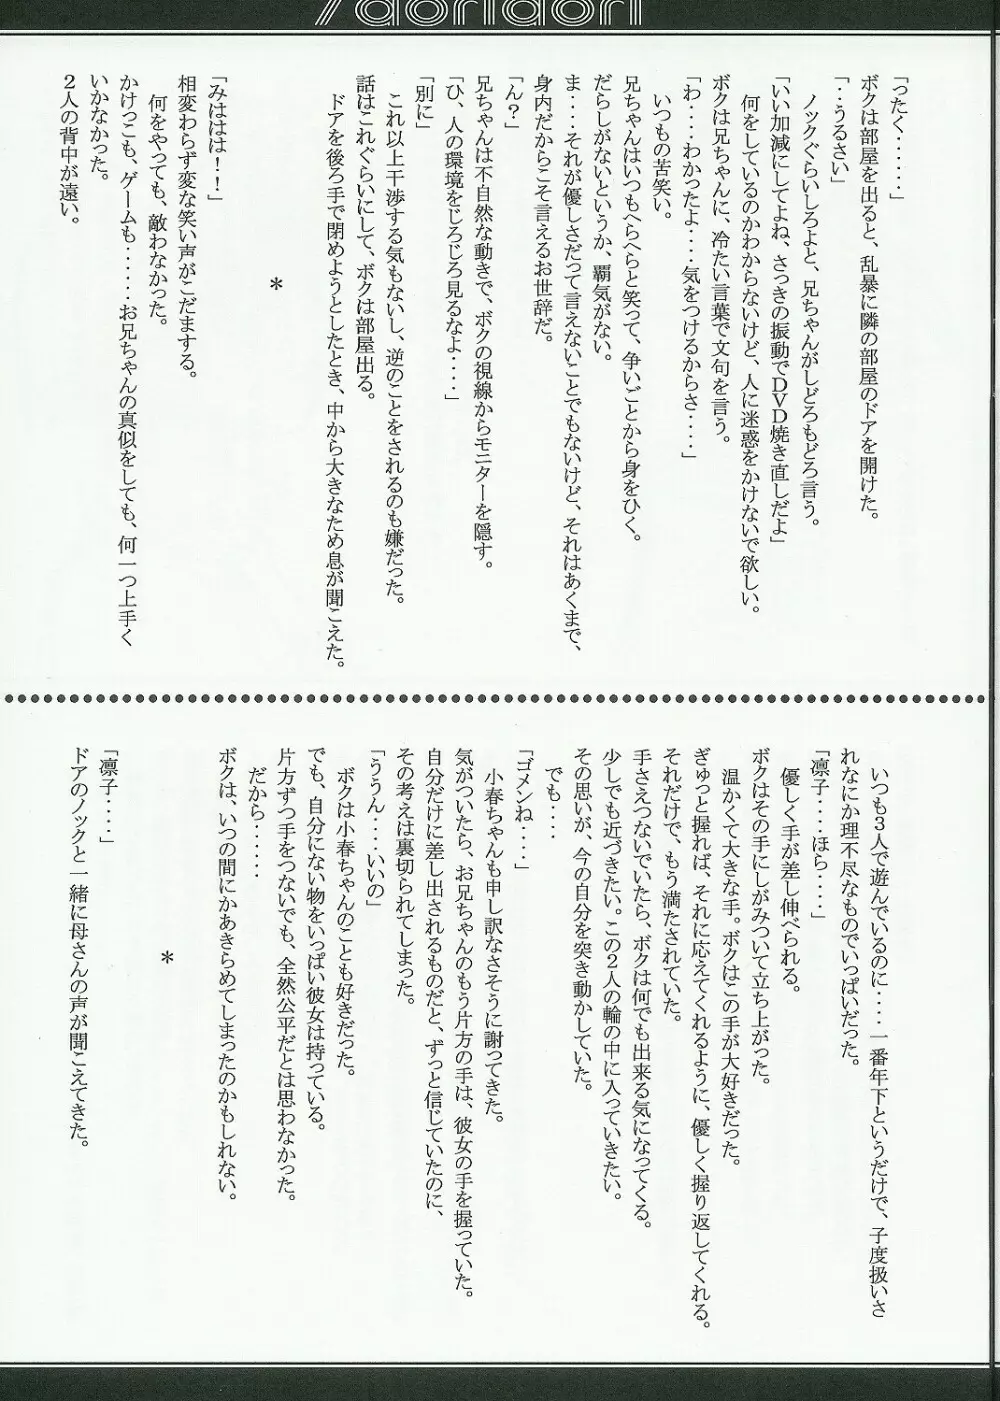 「ったく・・・・・・」
ボクは部屋を出ると、乱暴に隣の部屋のドアを開けた。
「・・うるさい」
ノックぐらいしろよと、兄ちゃんがしどろもどろ言う。
「いい加減にしてよね、さっきの振動でＤＶＤ焼き直しだよ」
何をしているのかわからないけど、人に迷惑をかけないで欲しい。
ボクは兄ちゃんに、冷たい言葉で文句を言う。
「わ・・・・わかったよ・・・気をつけるからさ・・・・」
いつもの苦笑い。
兄ちゃんはいつもへらへらと笑って、争いごとから身をひく。
だらしがないというか、覇気がない。
ま・・・・それが優しさだって言えないことでもないけど、それはあくまで、
身内だからこそ言えるお世辞だ。
「ん？」
兄ちゃんは不自然な動きで、ボクの視線からモニターを隠す。
「ひ、人の環境をじろじろ見るなよ・・・・」
「別に」
これ以上干渉する気もないし、逆のことをされるのも嫌だった。
話はこれぐらいにして、ボクは部屋出る。
ドアを後ろ手で閉めようとしたとき、中から大きなため息が聞こえた。
＊
「みははは！！」
相変わらず変な笑い声がこだまする。
何をやっても、敵わなかった。
かけっこも、ゲームも・・・・・・お兄ちゃんの真似をしても、何一つ上手く
いかなかった。
２人の背中が遠い。
いつも３人で遊んでいるのに・・・・一番年下というだけで、子度扱いさ
れなにか理不尽なものでいっぱいだった。
「凛子・・・・ほら・・・・」
優しく手が差し伸べられる。
ボクはその手にしがみついて立ち上がった。
温かくて大きな手。ボクはこの手が大好きだった。
ぎゅっと握れば、それに応えてくれるように、優しく握り返してくれる。
それだけで、もう満たされていた。
手さえつないでいたら、ボクは何でも出来る気になってくる。
少しでも近づきたい。この２人の輪の中に入っていきたい。
その思いが、今の自分を突き動かしていた。
でも・・・・
「ゴメンね・・・・」
小春ちゃんも申し訳なさそうに謝ってきた。
気がついたら、お兄ちゃんのもう片方の手は、彼女の手を握っていた。
自分だけに差し出されるものだと、ずっと信じていたのに、
その考えは裏切られてしまった。
「ううん・・・・いいの」
ボクは小春ちゃんのことも好きだった。
でも、自分にない物をいっぱい彼女は持っている。
片方ずつ手をつないでも、全然公平だとは思わなかった。
だから・・・・・
ボクは、いつの間にかあきらめてしまったのかもしれない。
＊
「凛子・・・・」
ドアのノックと一緒に母さんの声が聞こえてきた。